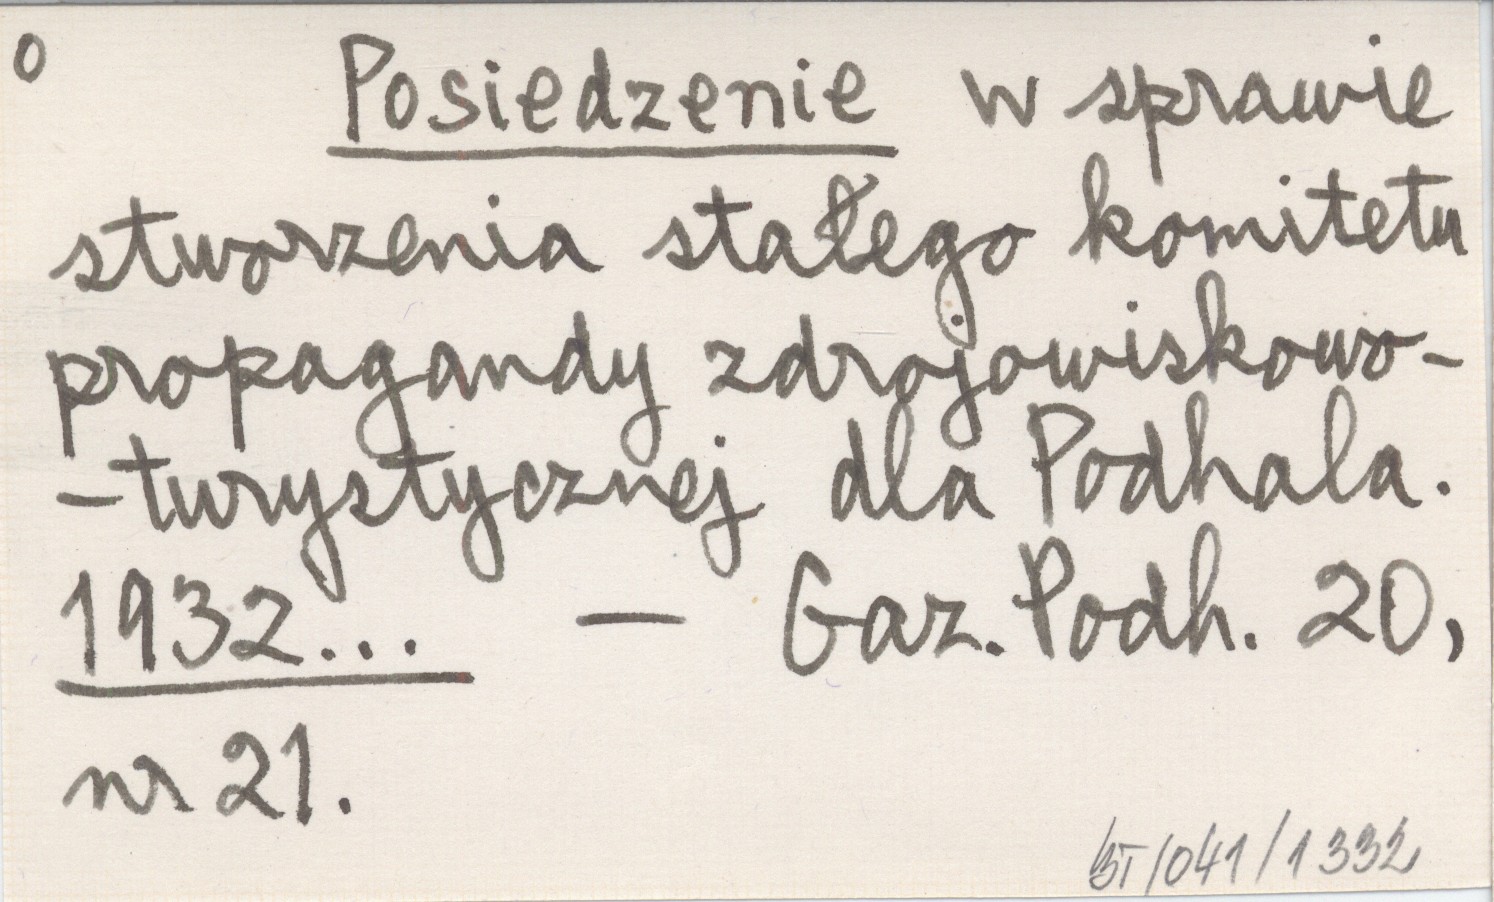 0 Posiedzenie w sprawie
stworzenia stałego komitetu
propagandy zdrojowiskowo-
-turystycznej dla Podhala.
1932... — Gaz. Podh. 20,
nr 21.
BT/041/1332